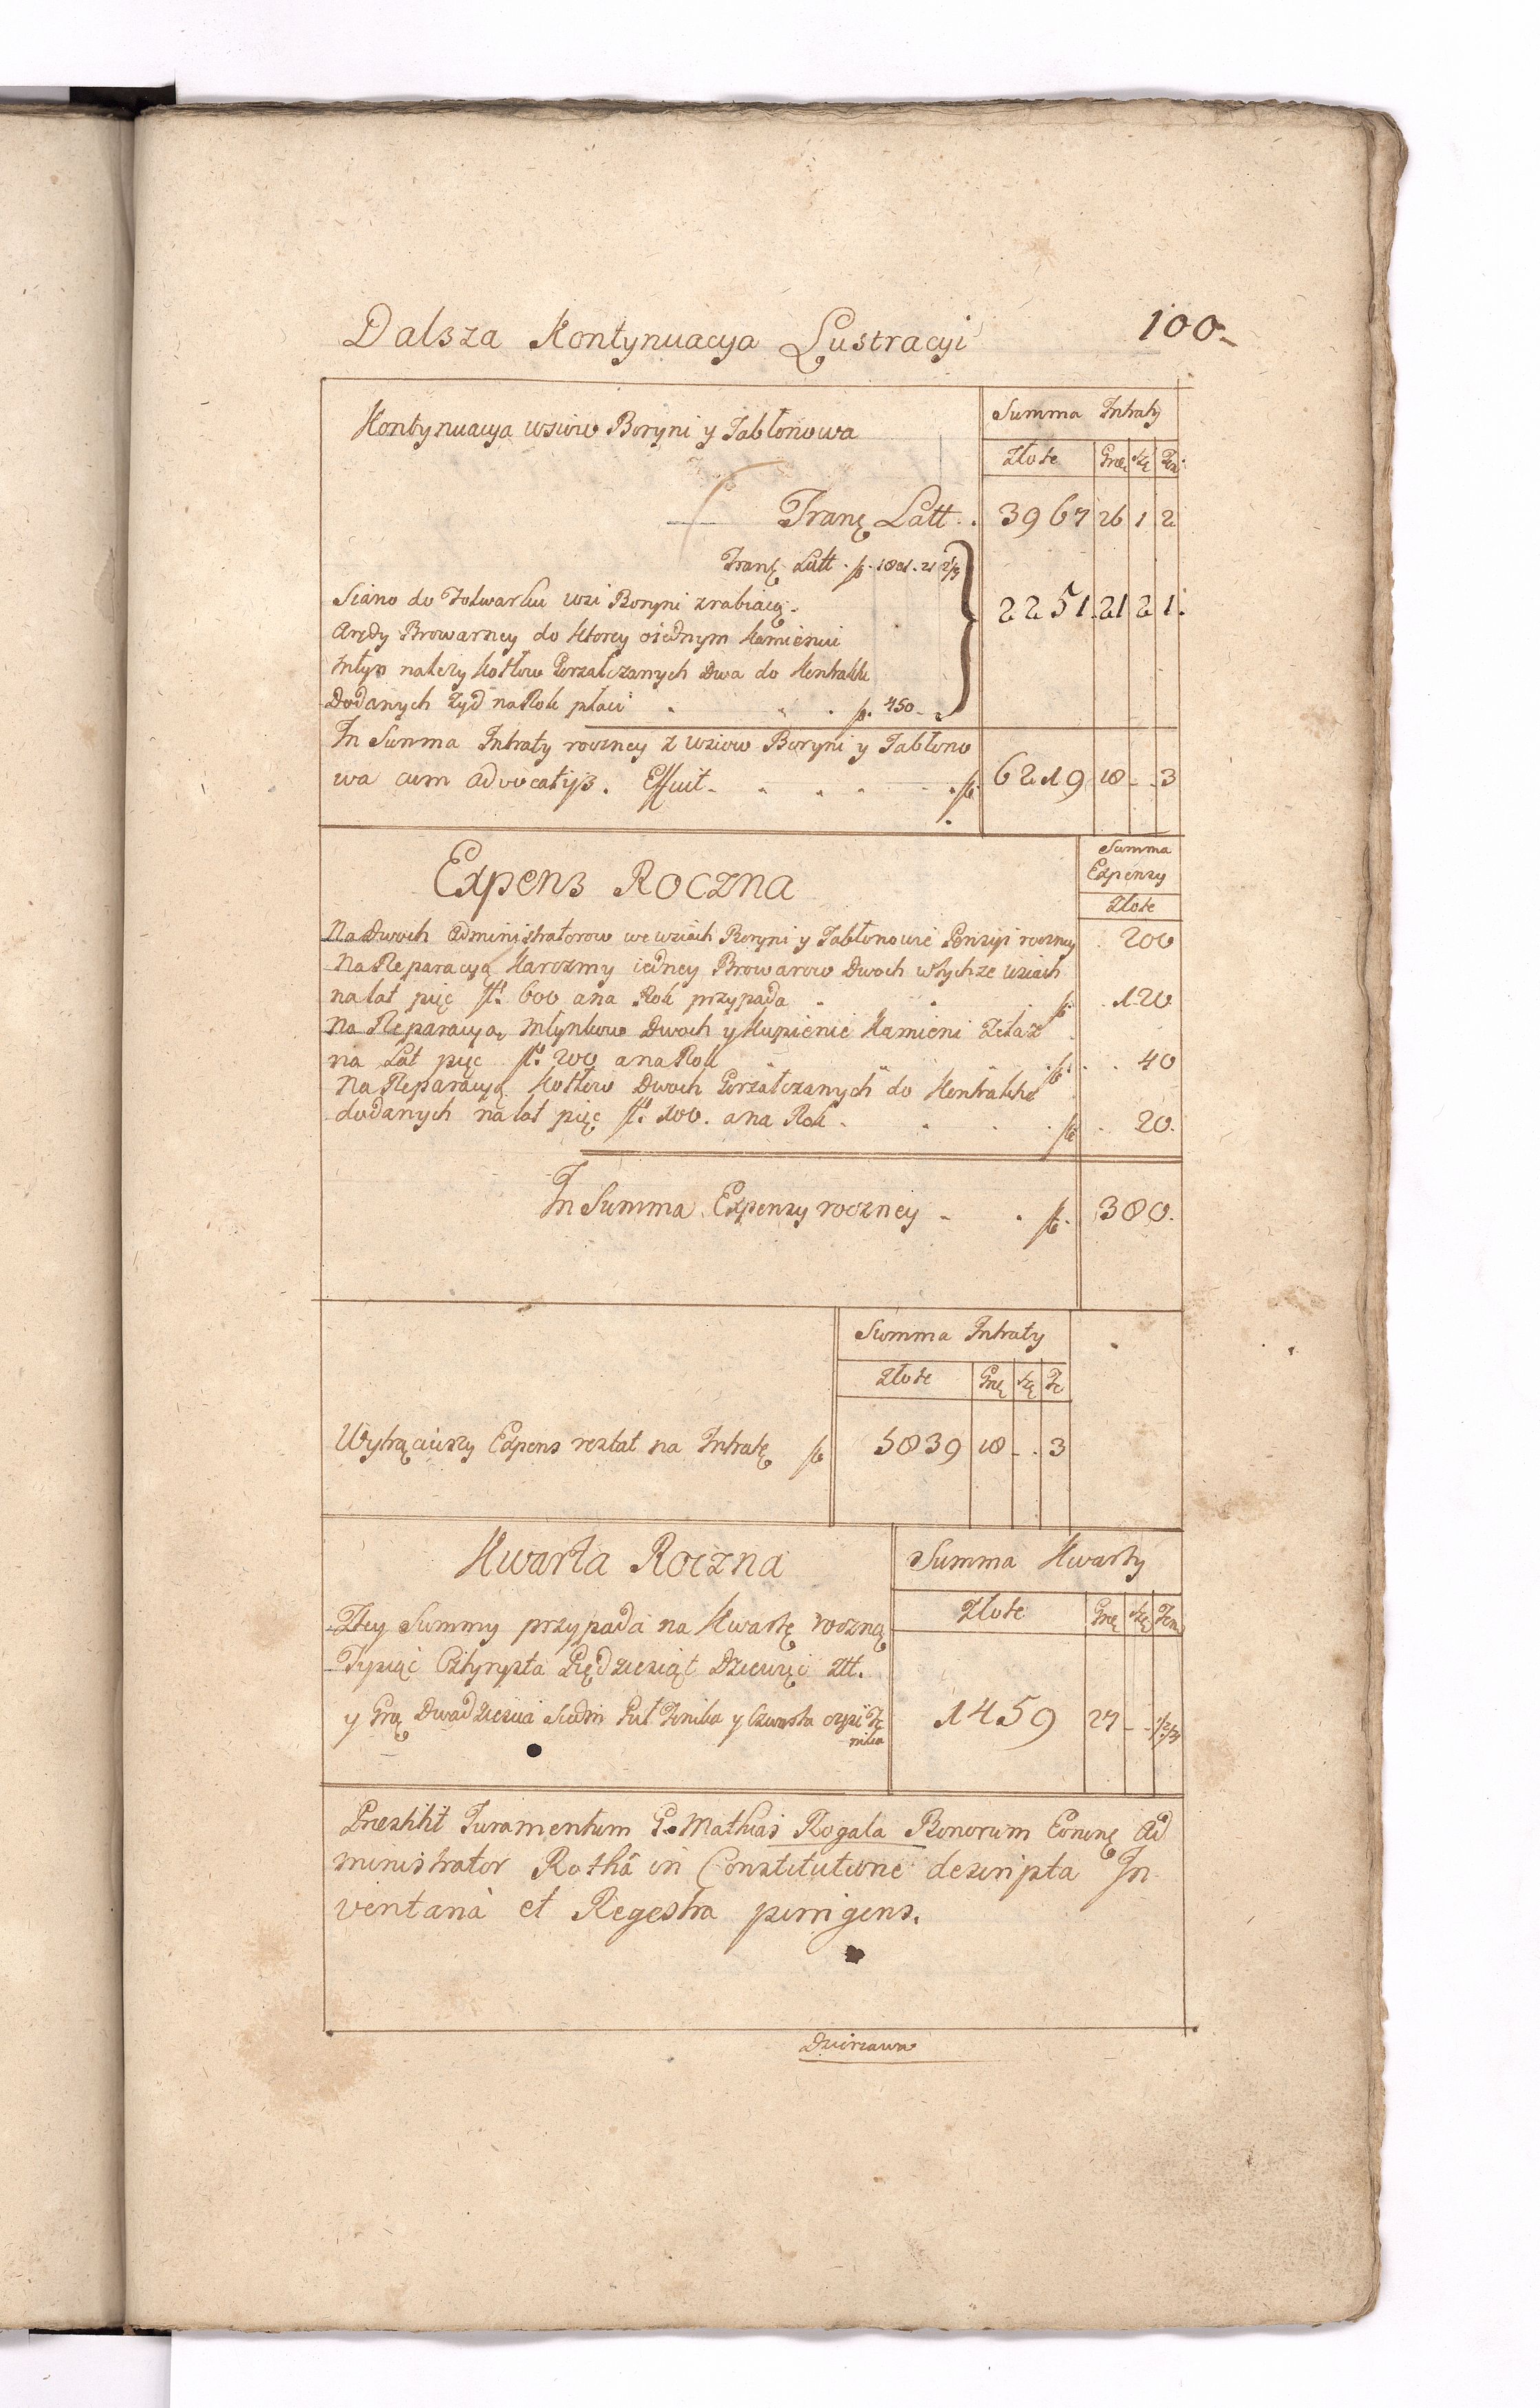 100.
Dalsza Kontynuacya Lustracyi
Kontynuacya wsiow Boryni y Jabłonowa
Summa Intraty
Złote Grę Szę
Tranę Latt. 3967 26 1 2
Tranę Latt. fl. 1801. 21 2/3
Siano do Folwarku wsi Boryni zrabiaią.
2251 21 2 1.
Arędy Browarney do ktorey o iednym Kamieniu
Młyn należy Kotłow Gorzałczanych Dwa do Kontraktu
Dodanych Zyd na Rok płaci fl. 450
In Summa Intraty roczney z wsiow Boryni y Jabłono
wa cum advocatijs. Efficit. fl. 6219 18 - 3
Summa
Expensy
Expens Roczna
Złote
Na Dwoch Administratorow we wsiach Boryni y Jabłonowie Pensyi roczney 200
Na Reparacyą Karczmy iedney Browarow Dwoch w tychze wsiach
na lat pięc fl. 600 a na Rok przypada fl. 120
Na Reparacyą Młynkow Dwoch y Kupienie Kamieni Zelaz
na Lat pięc fl. 200 a na Rok fl. 40
Na Reparacyą Kotłow Dwoch Gorzałczanych do Kontraktu
dodanych na lat pięc fl. 100. a na Rok fl. 20.
In Summa Expensy roczney fl. 380.
Summa Intraty
Złote Grę Szę
Wytrąciwszy Expens restat na Intratę fl. 5839 18 - 3
Kwarta Roczna
Summa Kwarty
Złote Grę Szę
Z tey Summy przypada na Kwartę roczną
Tysiąc Cztyrysta Piędziesiąt Dziewięć Złt.
y Grą Dwadziescia Siedm Puł y Czwarta częsc
1459 27
Præstitit Juramentum G. Mathias Rogala Bonorum Eorunę Ad
ministrator Rothâ in Constitutione descripta In
ventaria et Regestra porrigens.
Dzierzawa